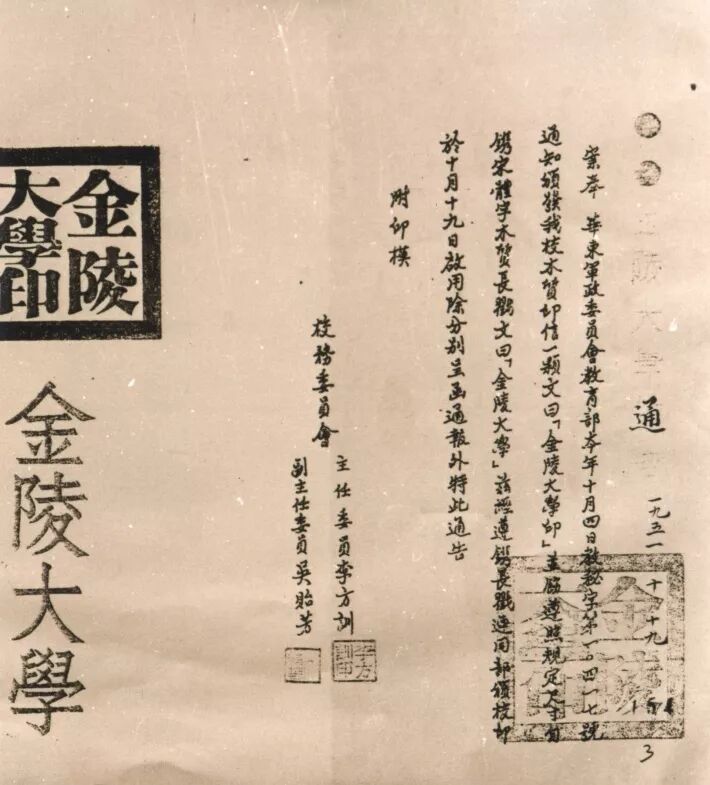 金陵大學通
一九五一 十 十九
案奉 華東軍政委員會教育部本年十月四日教秘字第一〇四一七號
通知頒發我校木質印信一顆文曰「金陵大學印」並飭遵照規定尺寸自
鐫宋體字木質長戳文曰「金陵大學」茲經遵鐫長戳連同部頒校印
於十月十九日啟用除分別呈函通報外特此通告
附印模
校務委員會
主任委員李方訓
副主任委員吳貽芳
李方訓印
金陵大學印
金陵大學
3